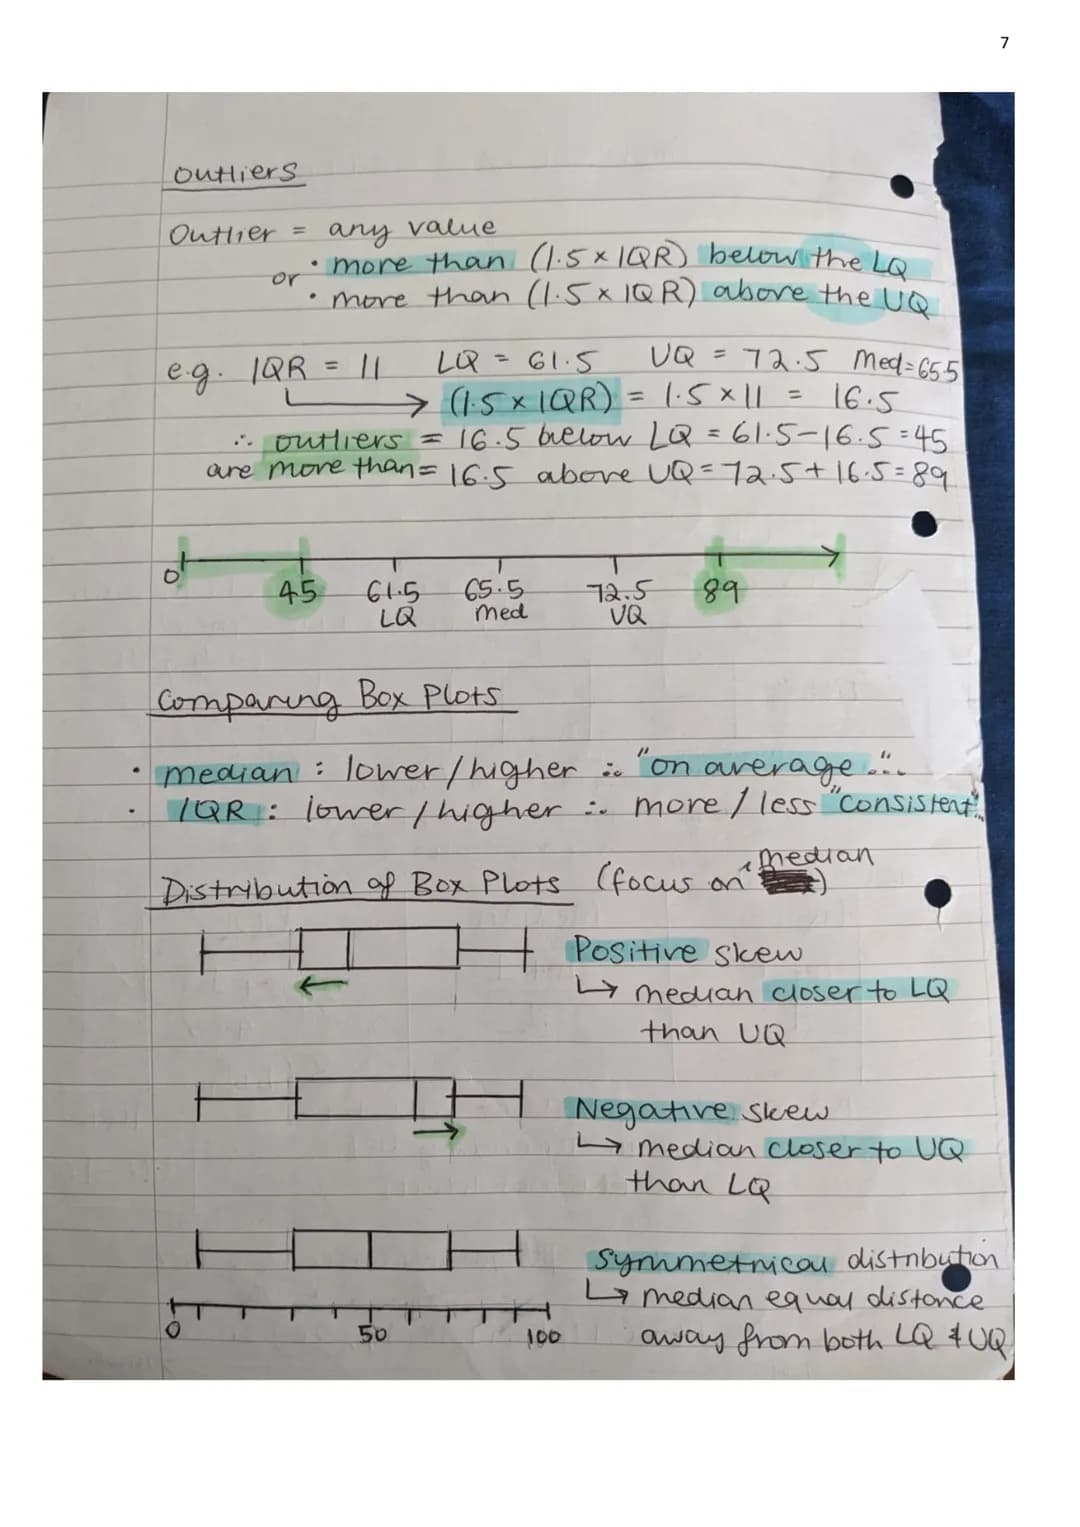 7
Outliers
Outlier = any value
• more than (1.5 × IQR) below the LQ
or
• more than (1.5 × IQR) above the UQ
e.g. IQR = 11 LQ = 61.5 UQ = 72.5 Med=65.5
→ (1.5 × IQR) = 1.5 × 11 = 16.5
∴ outliers = 16.5 below LQ = 61.5-16.5=45
are more than= 16.5 above UQ=72.5+16.5=89
0 45 61.5 65.5 72.5 89
LQ med UQ
Comparing Box Plots
• median : lower/higher ∴ "on average..."
• IQR : lower/higher ∴ more/less "consistent"...
Distribution of Box Plots (focus on median)
Positive skew
↳ median closer to LQ
than UQ
Negative skew
↳ median closer to UQ
than LQ
Symmetrical distribution
↳ median equal distance
away from both LQ & UQ
0 50 100